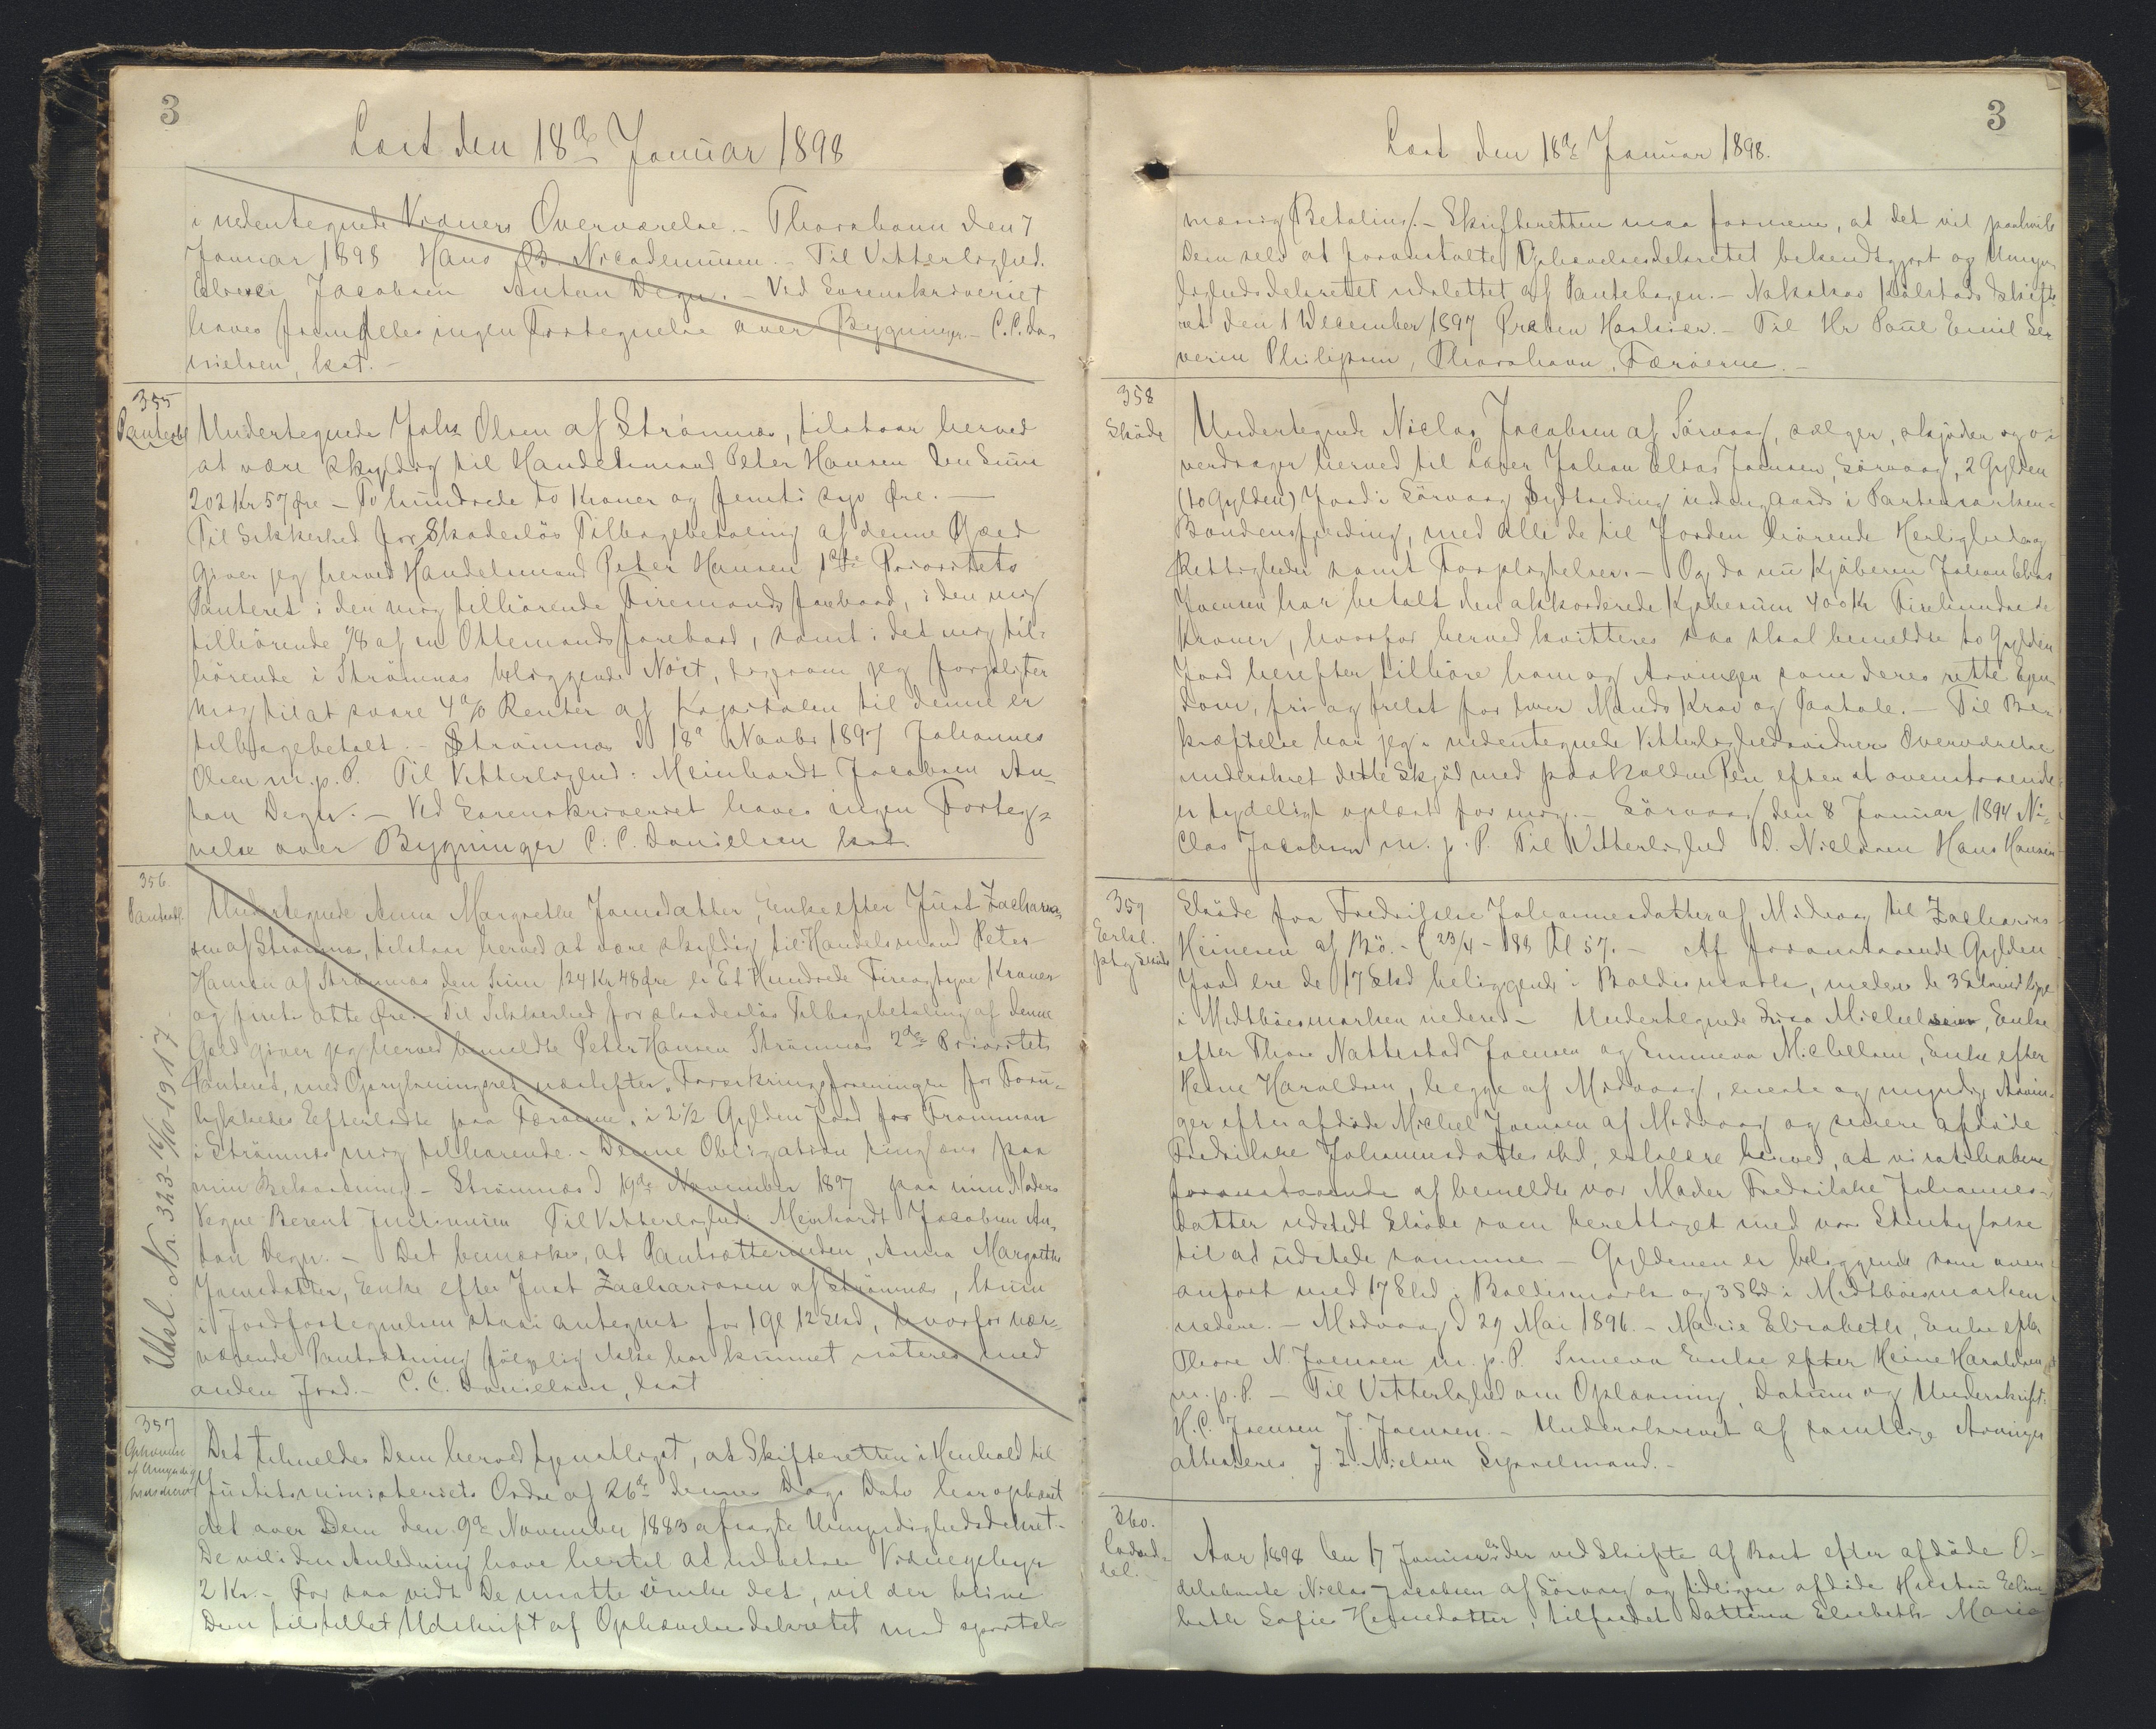 3
Læst den 18de Januar 1898
i nedentegnede Vidners Overværelse. – Thorshavn den 7
Januar 1898 Hans B. Nicodemussen. – Til Vitterlighed.
Jacobsen Anton Degn. – Ved Sorenskriveriet
haves fremdeles ingen Fortegnelse over Bygninger. – C.C. Da-
nielsen, kst. –
355
Pantobl
Undertegnede Johs Olsen af Strømnæs, tilstaar herved
at være skyldig til Handelsmand Peter Hansen den Sum
202 Kr 57 Øre – To hundrede to Kroner og femti syv Øre. –
Til Sikkerhed for Skadesløs Tilbagebetaling af denne Gjæld
giver jeg herved Handelsmand Peter Hansen 1ste Prioritets
Panteret i den mig tilhørende Firemands farebaad, i den mig
tilhørende 1/8 af en Ottemandsfarebaad, samt i det mig til-
hørende i Strømnæs beliggende Nöst, ligesom jeg forpligter
mig til at svare 4% Renter af Kapitalen til denne er
tilbagebetalt. – Strømnæs d 18de Novbr 1897 Johannes
Olsen m.p.P. Til Vitterlighed: Meinhardt Jacobsen An-
ton Degn. – Ved Sorenskriveriet haves ingen Forteg-
nelse over Bygninger C.C. Danielsen kst
356
Pantobl.
Undertegnede Anna Margrethe Joensdatter, Enke efter Just Zacharia
sen af Strømnæs, tilstaar herved at være skyldig til Handelsmand Peter
Hansen af Strømnæs den Sum 124 Kr 48 Øre er Et Hundrede Fireogtyve Kroner
og fireti otte Øre. – Til Sikkerhed for skadesløs Tilbagebetaling af denne
Gjæld giver jeg herved bemeldte Peter Hansen Strømnæs 2den Prioritets
Panteret, med Oprykningsret næstefter "Forsikringsforeningen for Foru-
lykkedes Efterladte paa Færøerne", i 2 1/2 Gylden Jord for Framman
i Strømnæs mig tilhørende. – Denne Obligation tinglæses paa
min Bekostning – Strømnæs d 19de November 1897 paa min Moders
Vegne Berent Justinussen Til Vitterlighed: Meinhardt Jacobsen An-
ton Degn. – Det bemærkes, at Pantsætterinden, Anna Margrethe
Joensdatter, Enke efter Just Zachariasen af Strømnæs, kun
i Jordfortegnelsen staar antegnet for 1 Gl 12 Skd, hvorfor nær-
værende Pantsætning følgelig ikke har kunnet noteres med
anden Jord. – C.C. Danielsen, kst
Udsl. Nr. 323 – 16/10 1917
357
Ophævelse
af Umyndig
hedsdecret
Det tilmeldes Dem herved tjenstligst, at Skifteretten i Henhold til
Justitsministeriets Ordre af 26de dennes Dags Dato har ophævet
det over Dem den 9de November 1883 afsagte Umyndighedsdekret. –
De vil i den Anledning have hertil at udbetale
2 Kr. – For saa vidt De maatte ønske det, vil der blive
Dem tilstillet Udskrift af Ophævelsesdekretet mod sportel-
3
Læst den 18de Januar 1898.
mæssig Betaling. – Skifteretten maa formene, at det vil paahvile
Dem selv at foranstalte Ophævelsesdekretet bekendtgjort og Umyn-
dighedsdekretet udslettet af Pantebogen. – Nakskov Købstads Skifte
ret den 1 December 1897 – Til Hr Poul Emil Se-
verin Philipsen, Thorshavn, Færøerne. –
358
Skøde
Undertegnede Niclas Jacobsen af Sørvaag, sælger, skjøder og o-
verdrager herved til Johan Elias Joensen, Sørvaag, 2 Gylden
(to Gylden) Jord i Sørvaag indengaards i
med alle de til Jorden hørende Herligheder og
Rettigheder samt Forpligtelser. – Og da nu Kjøberen Johan Elias
Joensen har betalt den akkorderede Kjøbesum 400 Kr Firehundrede
Kroner, hvorfor herved kvitteres saa skal bemeldte to Gylden
Jord herefter tilhøre ham og Arvinger som deres rette Ejen
dom, fri og frelst for hver Mands Krav og Paatale. – Til Be-
kræftelse har jeg i nedentegnede Vitterlighedsvidners Overværelse
underskrevet dette Skjød med paaholden Pen efter at ovenstaaende
er tydeligt oplæst for mig. – Sørvaag den 8 Januar 1894 Ni-
clas Jacobsen m.p.P. Til Vitterlighed D. Nielsen Hans Hansen
359
Erkl.
ptg Skøde
Skøde fra Fredrikke Johannesdatter af Midvaag til Zacharias
Heinesen af Bø. – 57. – Af foranstaaende Gylden
Jord ere de 17 Skd beliggende i medens de 3
i Midtbøesmarken nedere. – Undertegnede Enke
efter Thore Nattestad Joensen og Sunneva Michelsen, Enke efter
Heine Haraldsen, begge af Midvaag, eneste og myndige Arvin-
ger efter afdøde Michel Joensen af Midvaag og senere afdøde
Fredrikke Johannesdatter ibd, erklære herved, at vi ratihabere
foranstaaende af bemeldte vor Moder Fredrikke Johannes-
datter udstedt Skøde som berettiget med vore Samtykke
til at udstede samme. – Gyldenen er beliggende som oven
anført med 17 Skd i og 3 Skd i Midtbøesmarken
nedere. – Midvaag d 29 Mai 1896. – Marie Elisabeth, Enke efter
Thore N. Joensen m.p.P. Sunneva Enke efter Heine Haraldsen
m.p.P. – Til Vitterlighed om Oplæsning, Datum og Underskrift:
H.C. Joensen J. Joensen. – Underskrevet af samtlige Arvinger
attesteres J.L. Nielsen Sysselmand. –
360.
Lodsed-
del. –
Aar 1898 den 17 Januar er der ved Skifte af Boet efter afdøde O-
delsbonde Niclas Jacobsen af Sørvaag og tidligere afdøde Hustru Elisa
beth Sofie Heinesdatter, tilfaldet Datteren Elsebeth Maria